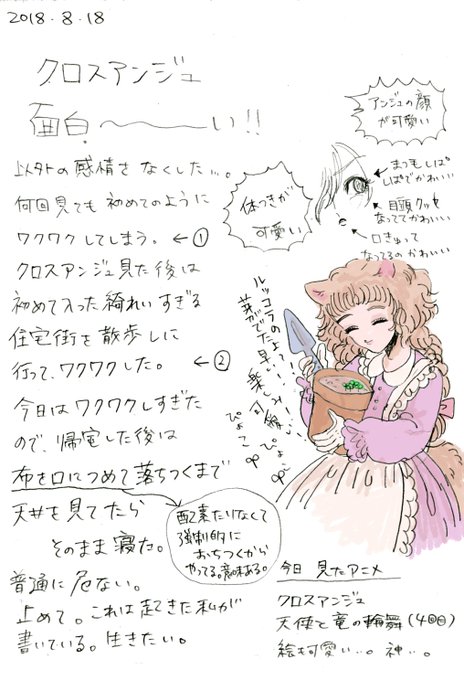 2018.8.18
クロスアンジュ
面白〜〜〜い!!
以外の感情をなくした…。
何回見ても初めてのように
ワクワクしてしまう。←①
クロスアンジュ見た後は
初めて入った綺れいすぎる
住宅街を散歩しに
行って、ワクワクした。←②
今日はワクワクしすぎた
ので、帰宅した後は
布を口につめて落ちつくまで
天井を見てたら
そのまま寝た。
普通に危ない。
止めて。これは起きた私が
書いている。生きたい。
アンジュの顔
が可愛い
まつ毛しぱ
しぱでかわいい
目頭クッと
なっててかわいい
口きゅって
なってるのかわいい
体つきが
可愛い
ルッコラの
芽がでたよ!!
早!!
楽しみ…!!
可愛
ぴょこ
ぴょこ
酸素たりなくて
強制的に
おちつくから
やってる。意味ある。
今日見たアニメ
クロスアンジュ
天使と竜の輪舞(4回目)
絵も可愛い…。神…。